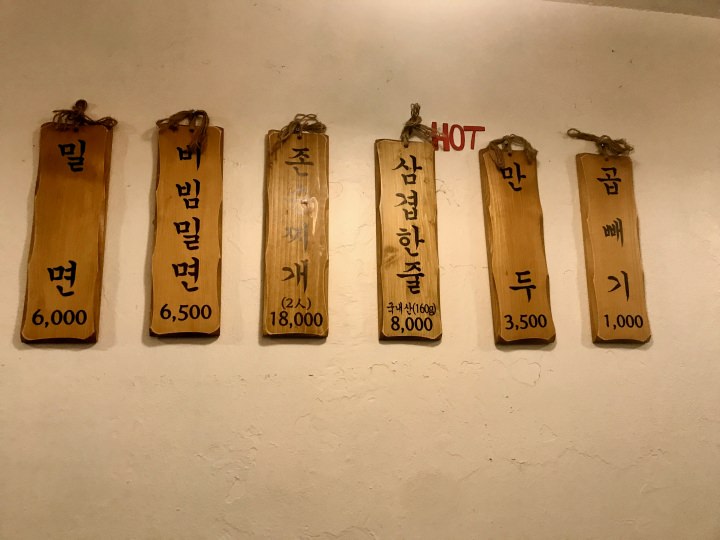 밀면
6,000
비빔밀면
6,500
개
(2人)
18,000
삼겹한줄
국내산(160g)
8,000
HOT
만두
3,500
곱빼기
1,000